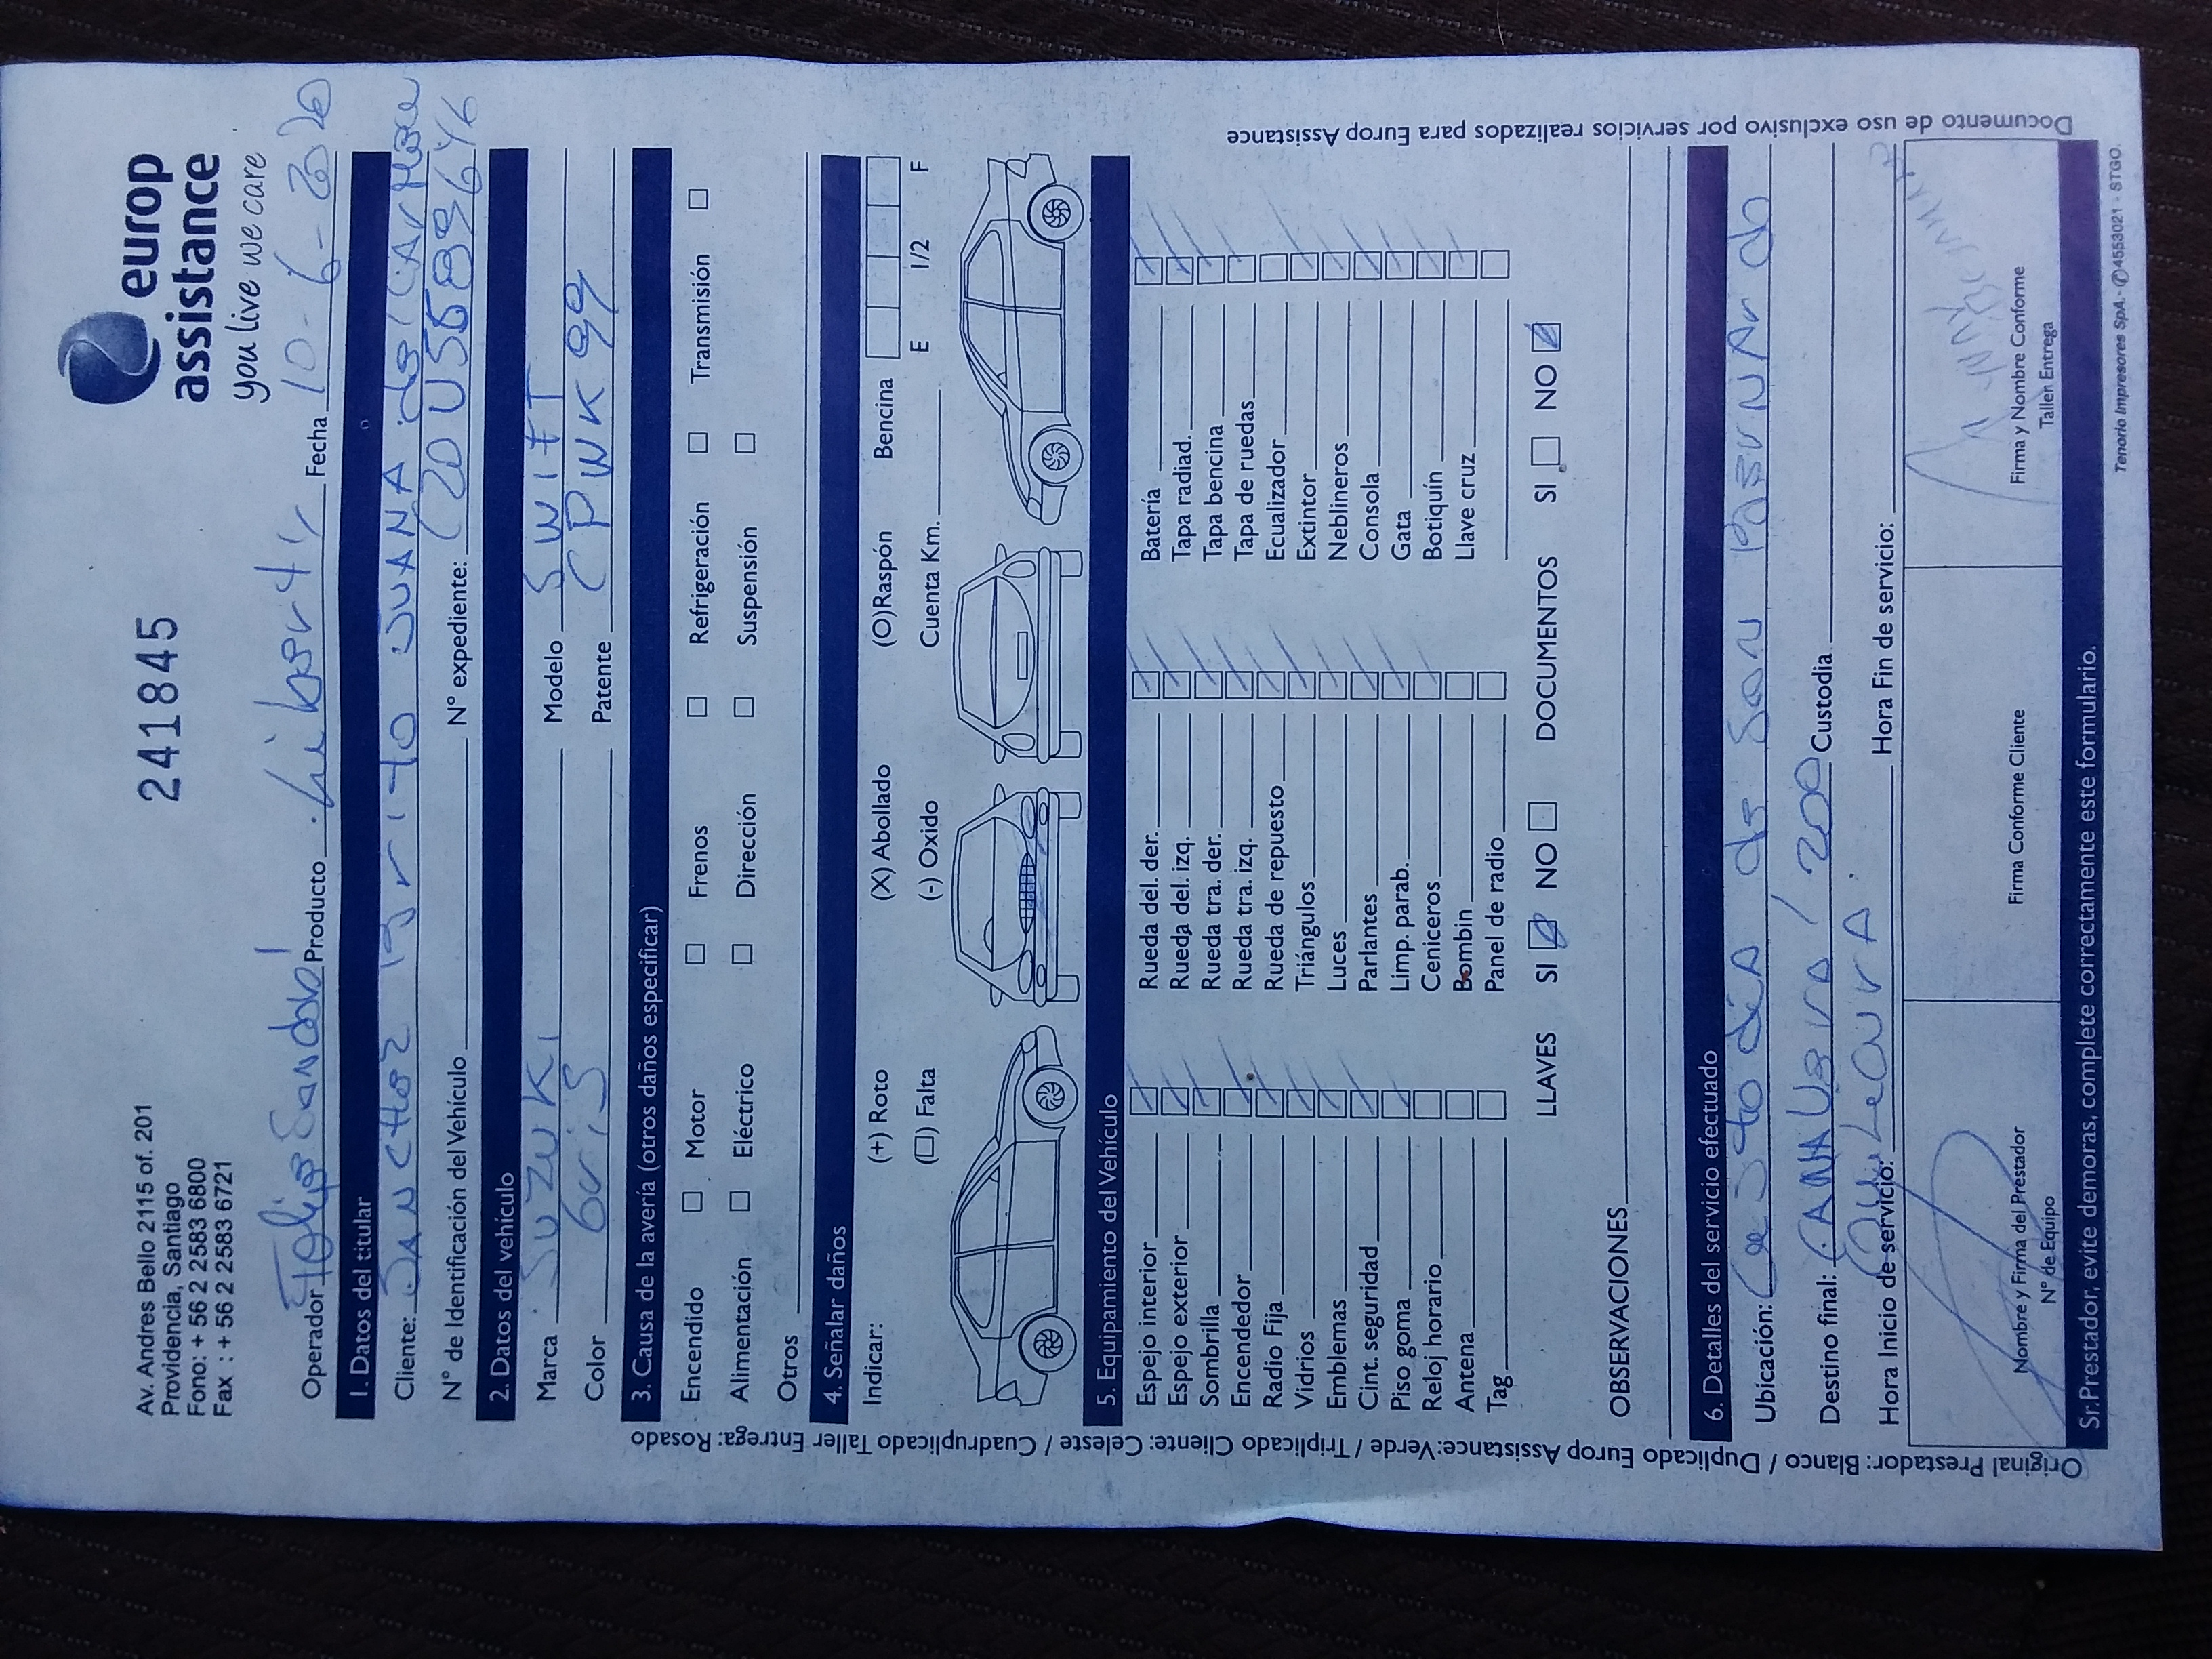 Av. Andres Bello 2115 of. 201
Providencia, Santiago
Fono: + 56 2 2583 6800
Fax : + 56 2 2583 6721
241845
europ
assistance
you live we care
Operador Felipe Sandoval Producto Liberty Fecha 10-6-2020
1. Datos del titular
Cliente: Sanchez Brito Juana del Carmen
N° de Identificación del Vehículo N° expediente:
2. Datos del vehículo
Marca SUZUKI Modelo SWIFT
Color Gris Patente CPWK 99
3. Causa de la avería (otros daños especificar)
Encendido Motor Frenos Refrigeración Transmisión
Alimentación Eléctrico Dirección Suspensión
Otros
4. Señalar daños
Indicar: (+) Roto (X) Abollado (O)Raspón Bencina
(□) Falta (-) Oxido Cuenta Km. E 1/2 F
5. Equipamiento del Vehículo
Espejo interior Rueda del. der. Batería
Espejo exterior Rueda del. izq. Tapa radiad.
Sombrilla Rueda tra. der. Tapa bencina
Encendedor Rueda tra. izq. Tapa de ruedas
Radio Fija Rueda de repuesto Ecualizador
Vidrios Triángulos Extintor
Emblemas Luces Neblineros
Cint. seguridad Parlantes Consola
Piso goma Limp. parab. Gata
Reloj horario Ceniceros Botiquín
Antena Bombin Llave cruz
Tag Panel de radio
LLAVES SI NO DOCUMENTOS SI NO
OBSERVACIONES
6. Detalles del servicio efectuado
Ubicación: Custodia de San Bernardo
Destino final: 200 Custodia
Quilicura
Hora Inicio de servicio: Hora Fin de servicio:
Nombre y Firma del Prestador
N° de Equipo
Firma Conforme Cliente
Firma y Nombre Conforme
Taller Entrega
Sr.Prestador, evite demoras, complete correctamente este formulario.
Tenorio Impresores SpA. - ✆4553021 - STGO.
Original Prestador: Blanco / Duplicado Europ Assistance:Verde / Triplicado Cliente: Celeste / Cuadruplicado Taller Entrega: Rosado
Documento de uso exclusivo por servicios realizados para Europ Assistance